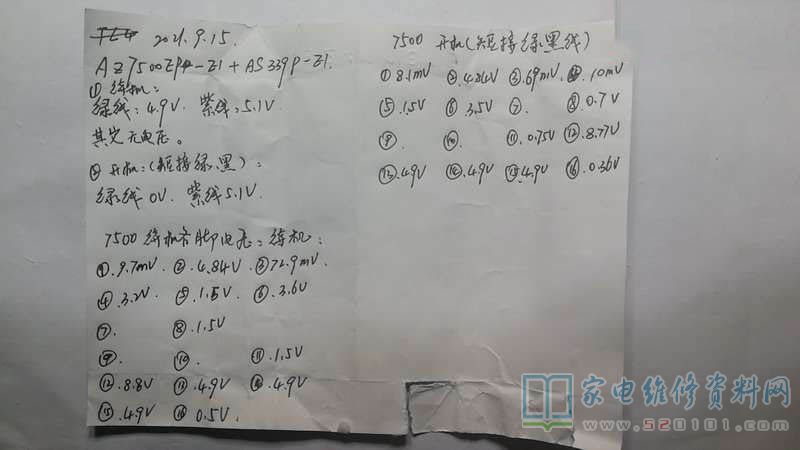 2021.9.15.
AZ7500EP4-E1+AS339P-E1.
① 待机:
绿线:4.9V. 紫线:5.1V
其它无电压。
② 开机:(短接绿.黑):
绿线0V. 紫线5.1V.
7500 待机各脚电压:待机:
①.9.7mV. ②.4.84V. ③72.9mV.
④.3.2V. ⑤.1.5V. ⑥.3.6V
⑦. ⑧.1.5V
⑨. ⑩. ⑪.1.5V
⑫.8.8V ⑬.4.9V ⑭.4.9V
⑮.4.9V ⑯ 0.5V.
7500 开机(短接绿.黑线)
① 8.1mV ②.4.84V ③.69mV. ④.10mV
⑤.1.5V ⑥ 3.5V ⑦. ⑧ 0.7V
⑨. ⑩. ⑪.0.75V ⑫ 8.77V
⑬.4.9V ⑭.4.9V ⑮.4.9V ⑯.0.36V
家电维修资料网
www.520101.com